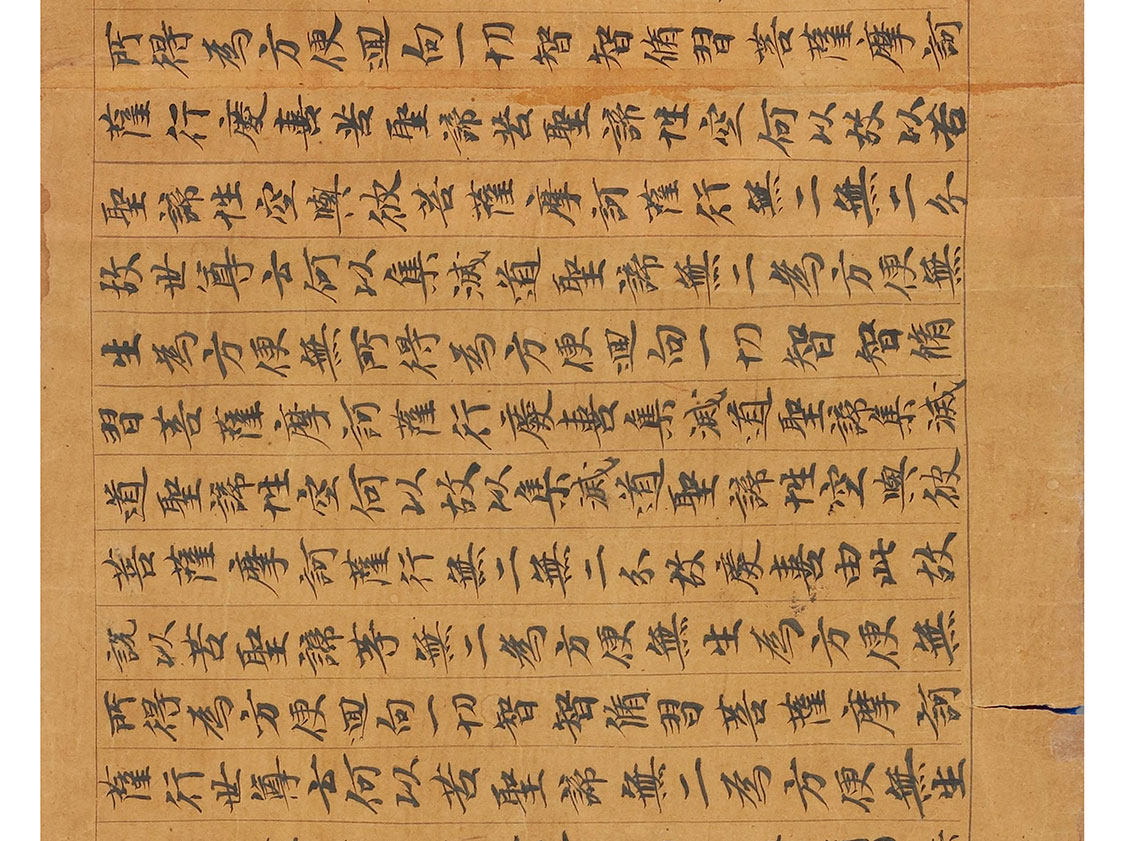 所得為方便迴向一切智智脩習菩薩摩訶
薩行慶喜苦聖諦苦聖諦性空何以故以苦
聖諦性空與彼菩薩摩訶薩行無二無二分
故世尊云何以集滅道聖諦無二為方便無
生為方便無所得為方便迴向一切智智脩
習菩薩摩訶薩行慶喜集滅道聖諦集滅
道聖諦性空何以故以集滅道聖諦性空與彼
菩薩摩訶薩行無二無二分故慶喜由此故
說以苦聖諦等無二為方便無生為方便無
所得為方便迴向一切智智脩習菩薩摩訶
薩行世尊云何以苦聖諦無二為方便無生